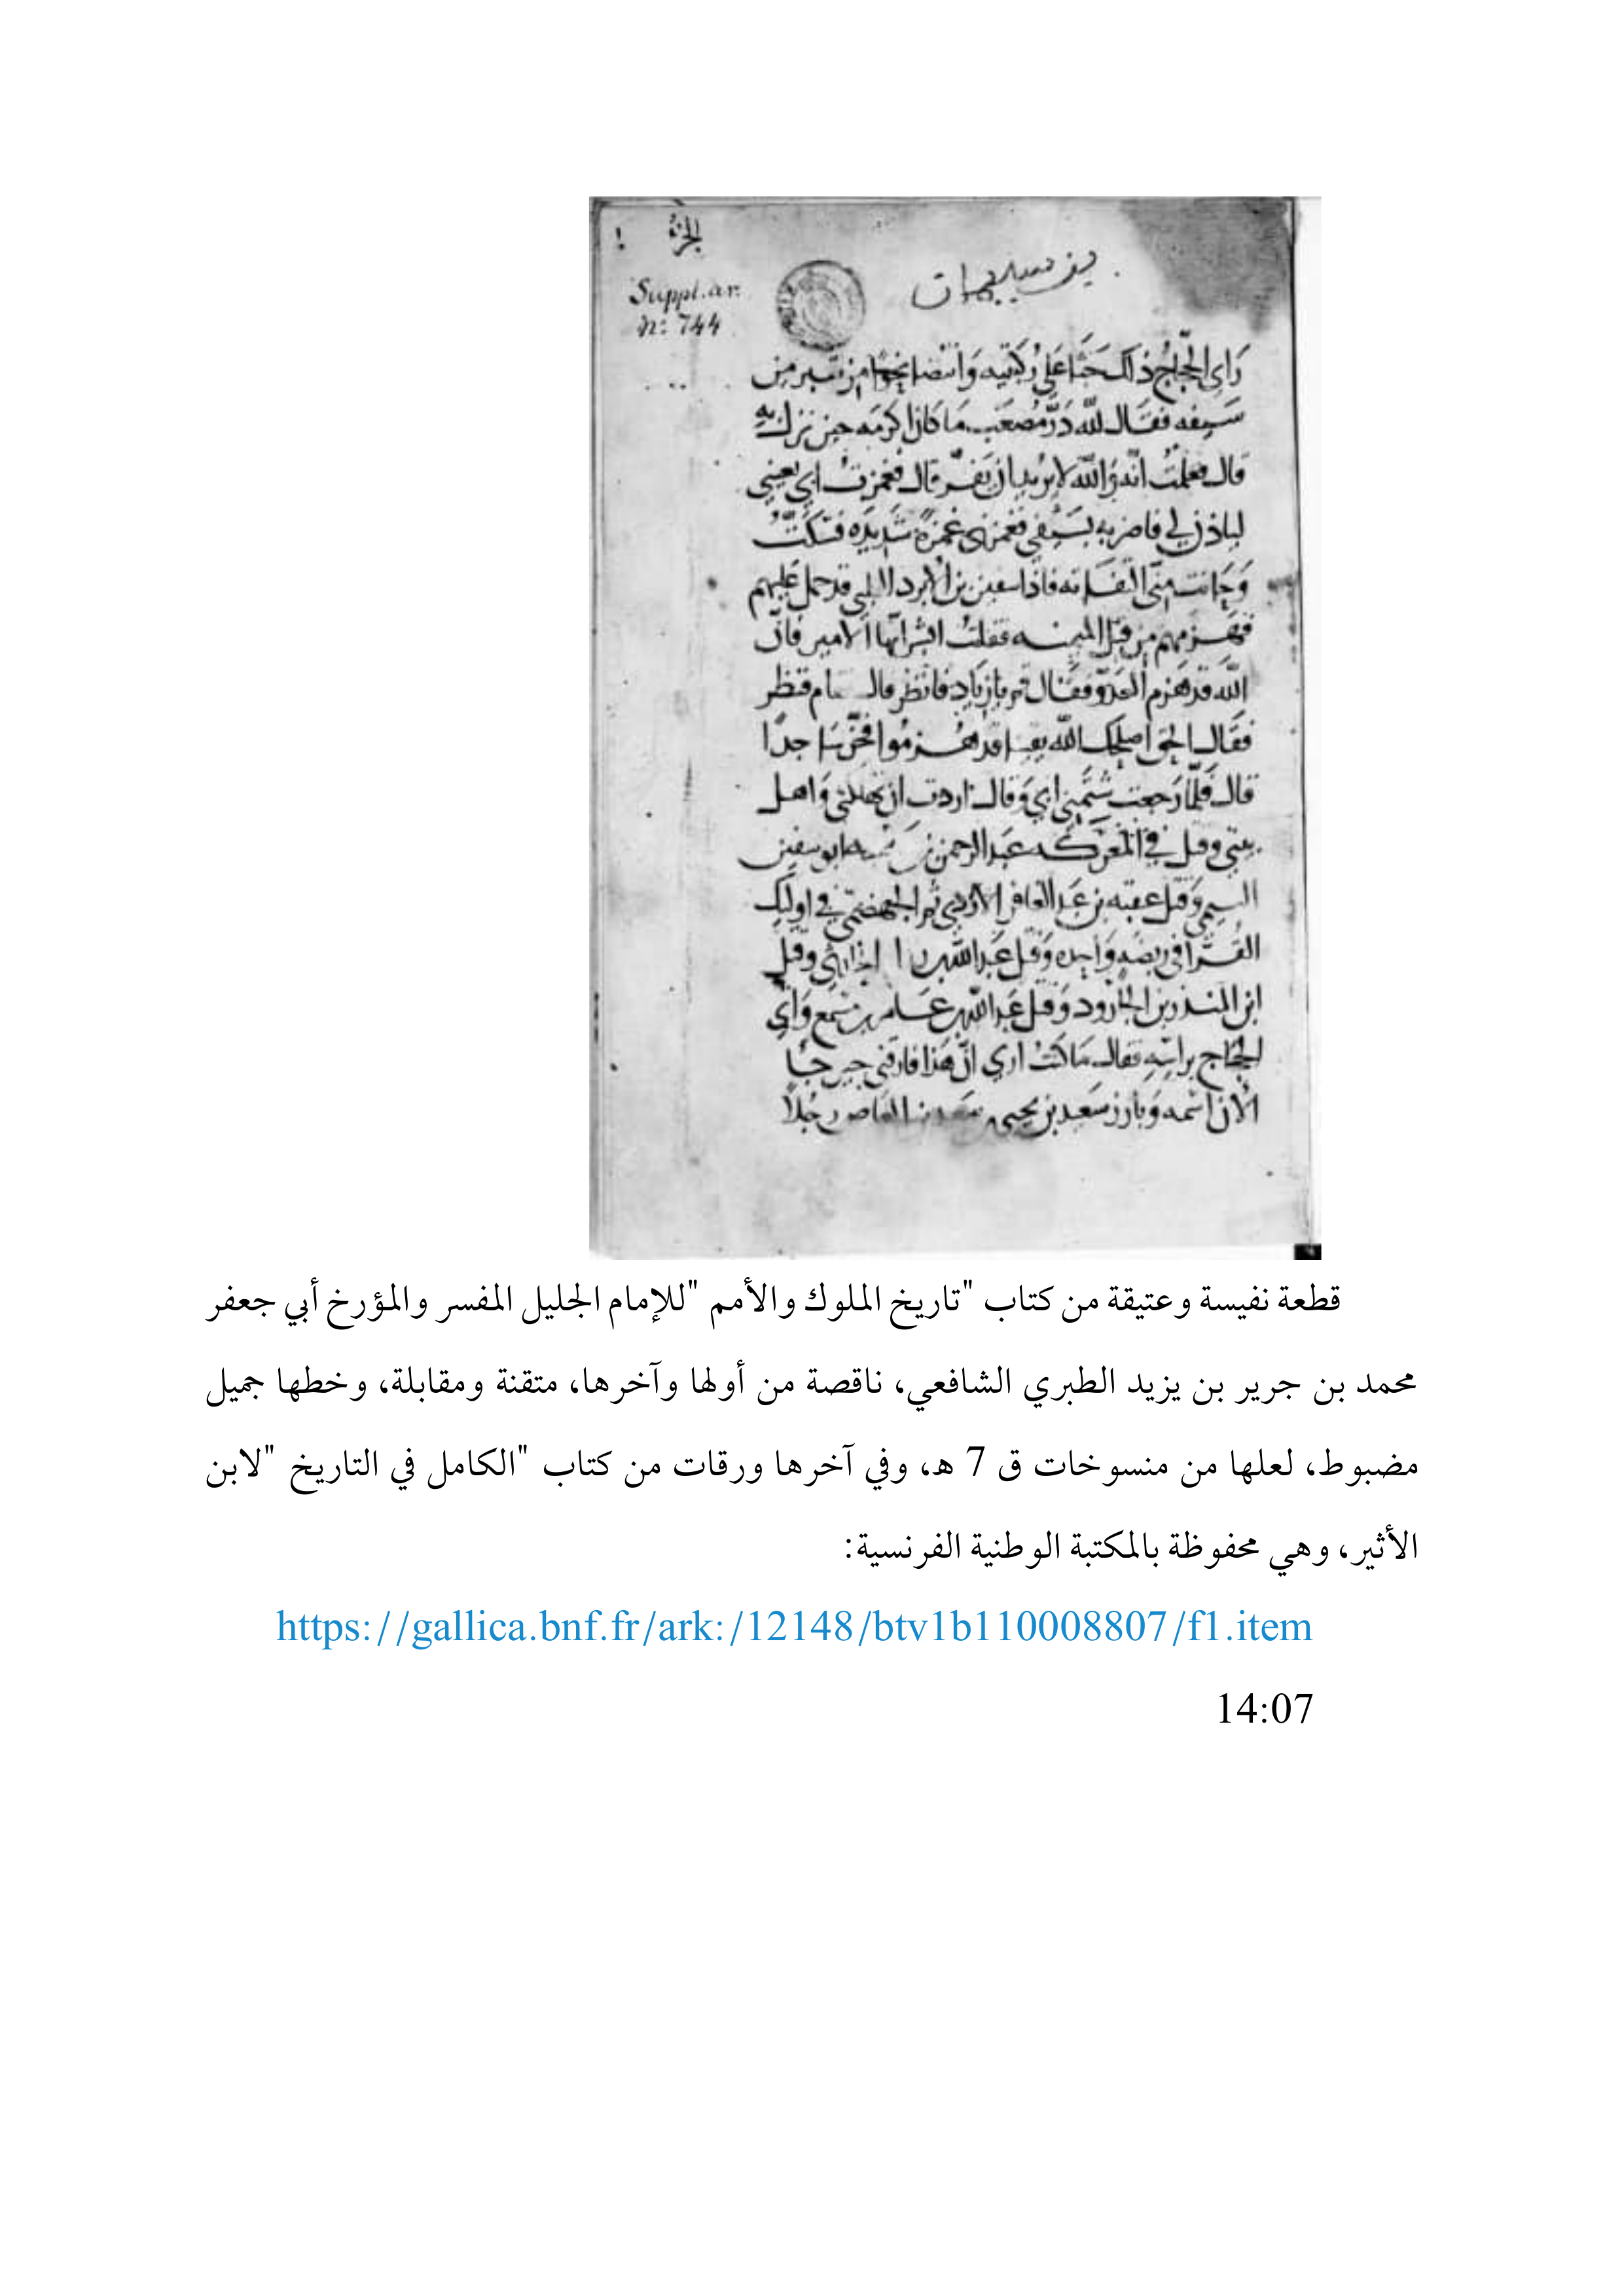 الجزء
Suppl. ar.
n° 744
رَاى الحجّاجُ ذلك جَثَا عَلى رُكبَتيه وَانتضا نحوًا من شبر من
سَيفه فقَال لله دَرّ مُصعَب مَا كان اكرمَه حين نزل به
قال فعلمتُ انّه وَالله لا يريد ان يَفرّ قال فغمزتُ ابي بعيني
لياذن لي فاضربه بسَيفي فغمزني غمزةً شديدَه فسَكنتُ
وَحَانت منّي التفَاته فاذا سفين بن الابرد الكلبي قد حمل عَليهم
فهَزمهم من قبَل الميمنه فقلتُ ابشر ايّها الامير فانّ
الله قد هَزم العَدوّ فقَال قم يا زيَاد فانظر قال فنظر
فقَال الحق اصلحك الله يقينا قد هُزموا فخرّ سَاجدًا
قال فلمّا رَجعت شتَمني ابي وَقال اردت ان تهلكني وَاهل
بيتي وقتل في المعرَكه عَبد الرحمن بن ابو سفين
وَقتل عقبه بن عَبد الغافر الازدي ثم الجهضمي في اوليك
القُرّا في ربضه وَاحده وَقتل عَبد الله بن وقتل
ابن المنذر بن الجارود وَقتل عَبد الله بن عَامر بن مسْمع وَاتي
الحجّاج برَاسِه فقال مَا كنتُ ارى انّ هَذا فارَقني حين جَا
الآن برَاسه وَبارز سَعيد بن يحيى بن سَعيد بن العَاص رجُلاً
قطعة نفيسة وعتيقة من كتاب "تاريخ الملوك والأمم "للإمام الجليل المفسر والمؤرخ أبي جعفر
محمد بن جرير بن يزيد الطبري الشافعي، ناقصة من أولها وآخرها، متقنة ومقابلة، وخطها جميل
مضبوط، لعلها من منسوخات ق 7 هـ، وفي آخرها ورقات من كتاب "الكامل في التاريخ "لابن
الأثير، وهي محفوظة بالمكتبة الوطنية الفرنسية:
https://gallica.bnf.fr/ark:/12148/btv1b110008807/f1.item
14:07